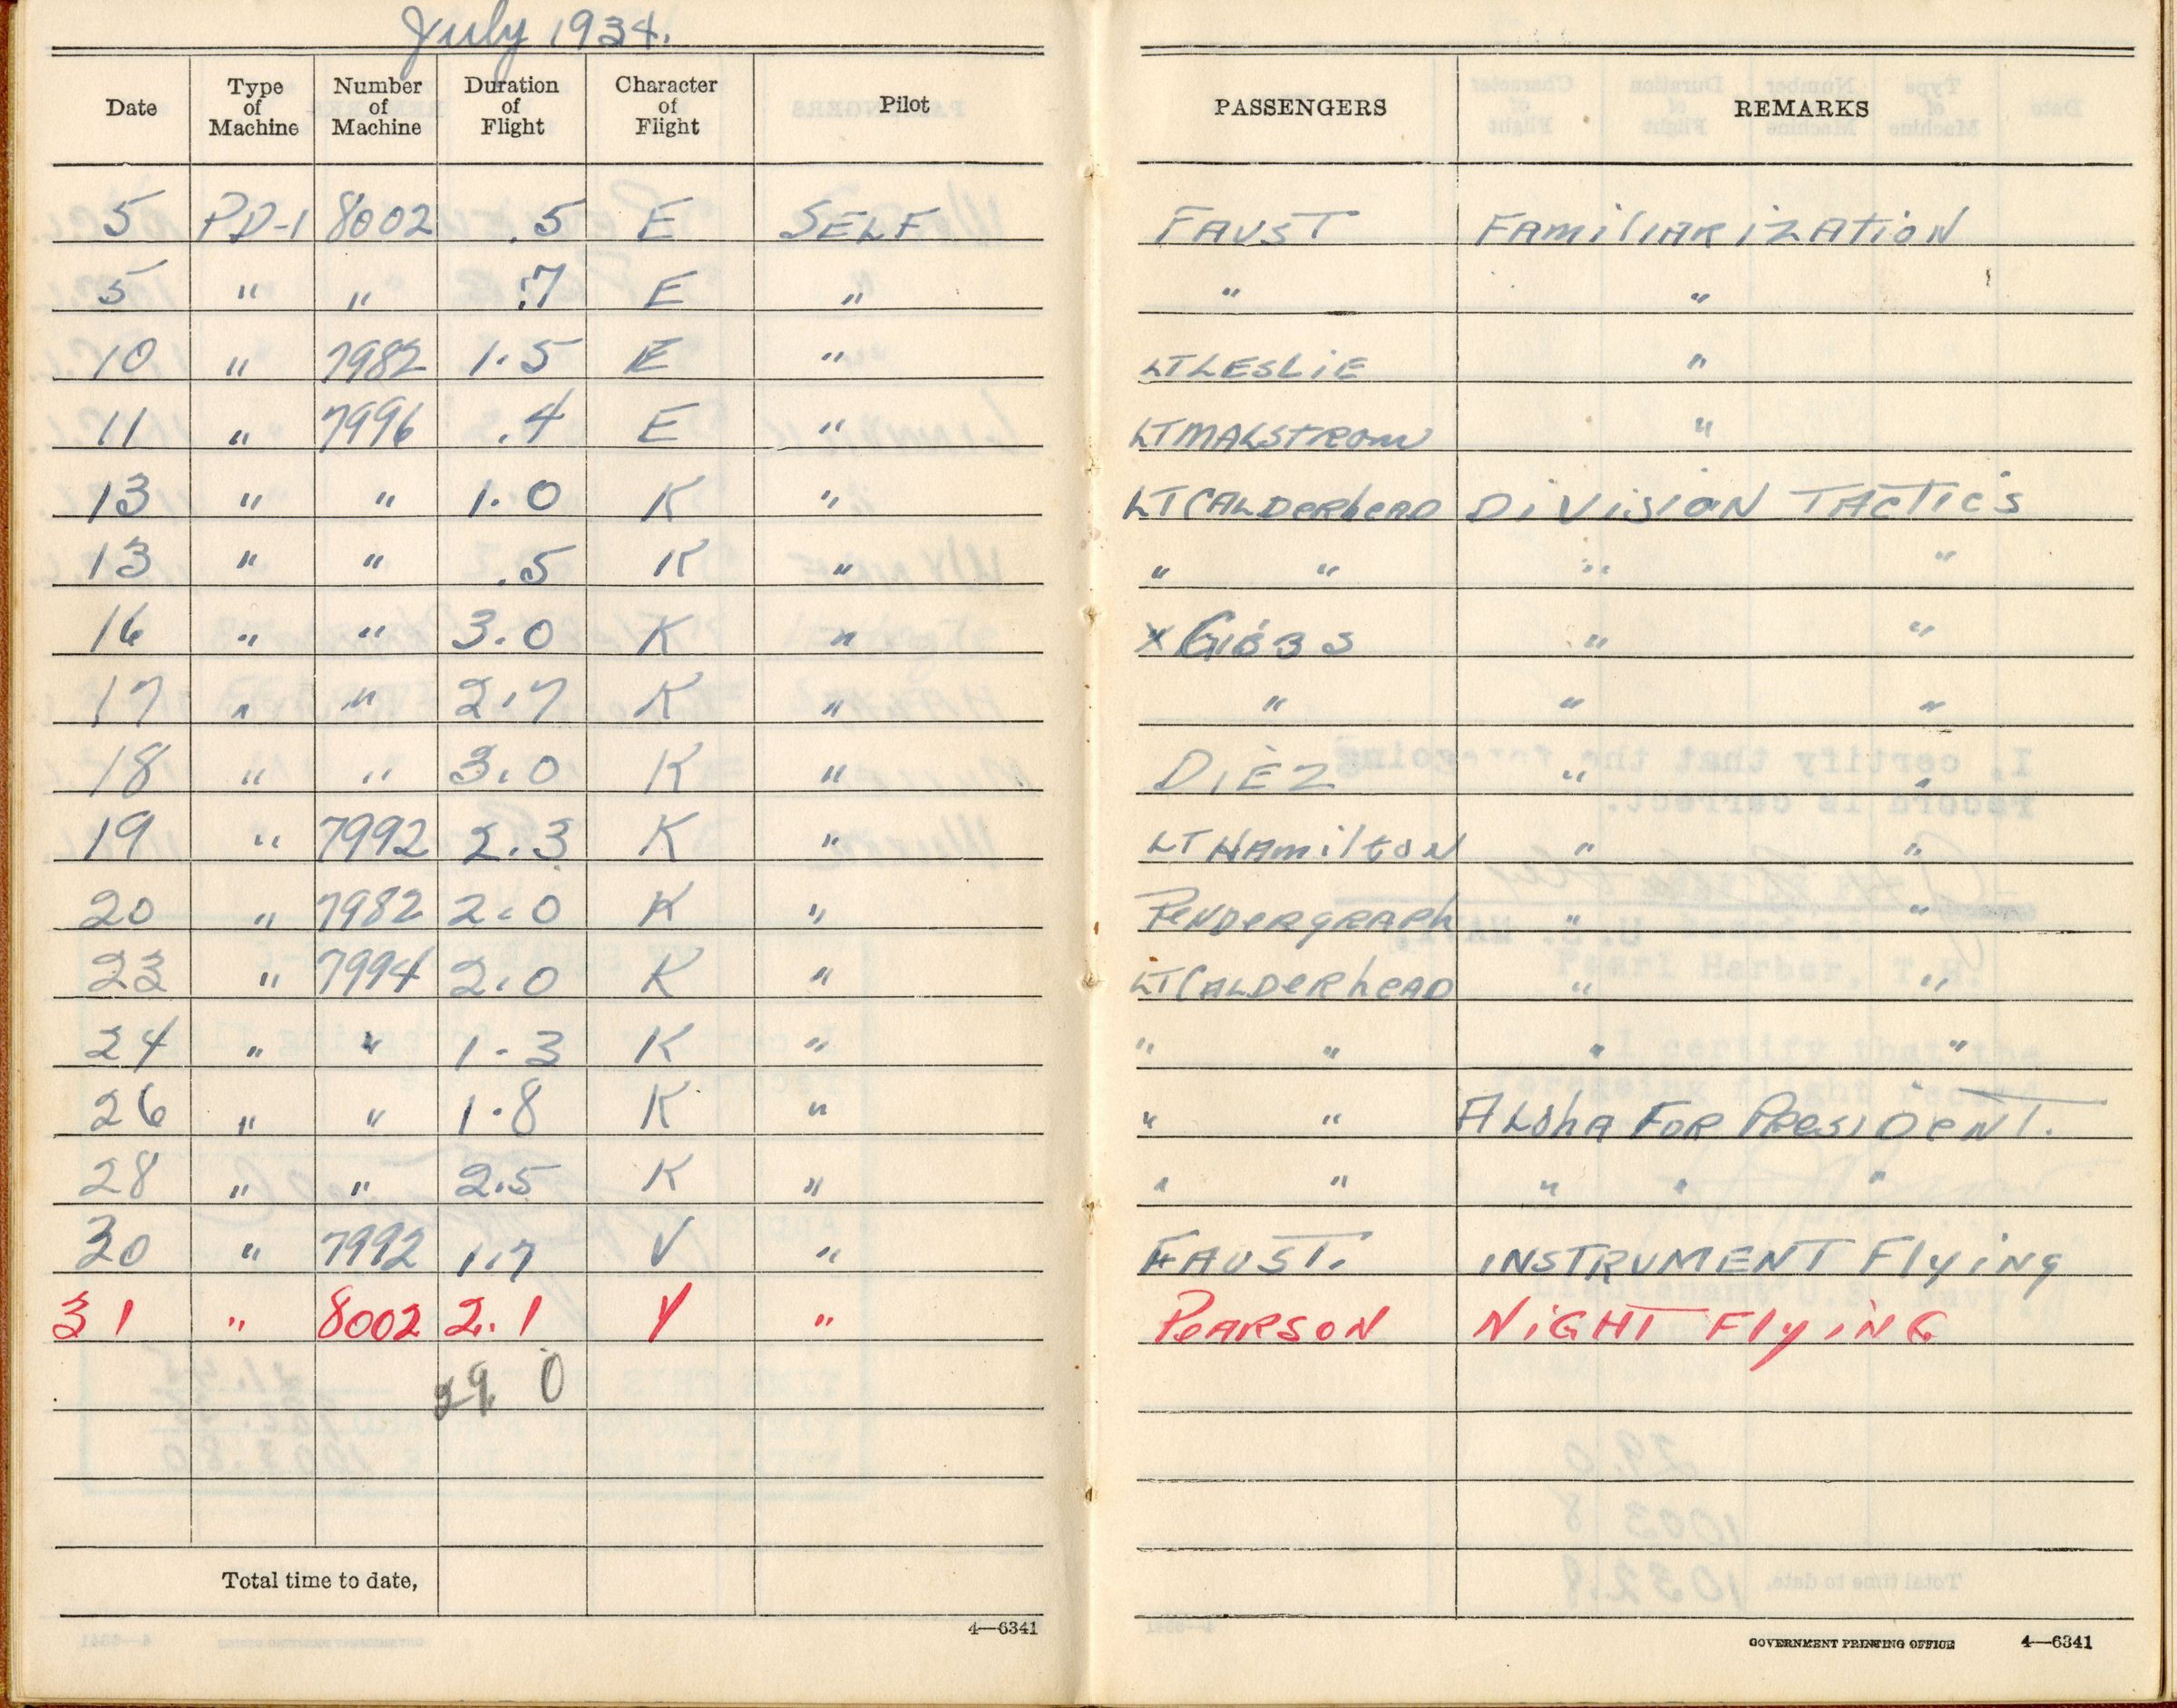 July 1934.
Date Type of Machine Number of Machine Duration of Flight Character of Flight Pilot PASSENGERS REMARKS
5 PD-1 8002 .5 E SELF FAUST FAMILIARIZATION
5 " " .7 E " " "
10 " 7982 1.5 E " LT LESLIE "
11 " 7996 .4 E " LT MALSTROM "
13 " " 1.0 K " LT CALDERHEAD DIVISION TACTICS
13 " " .5 K " " " " "
16 " " 3.0 K " x GIBBS " "
17 " " 2.7 K " " " "
18 " " 3.0 K " DIEZ " "
19 " 7992 2.3 K " LT HAMILTON " "
20 " 7982 2.0 K " PENDERGRAPH " "
23 " 7994 2.0 K " LT CALDERHEAD " "
24 " " 1.3 K " " " " "
26 " " 1.8 K " " " ALOHA FOR PRESIDENT.
28 " " 2.5 K " " " " " "
30 " 7992 1.7 V " FAUST. INSTRUMENT FLYING
31 " 8002 2.1 Y " PEARSON NIGHT FLYING
29 0
Total time to date,
4—6341
GOVERNMENT PRINTING OFFICE 4—6341